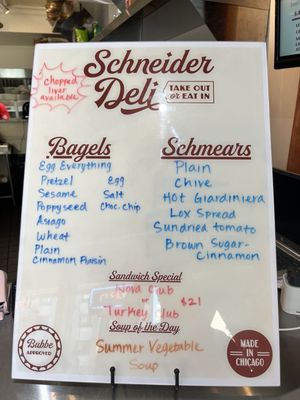 Chopped
liver
available
Schneider
Deli
TAKE OUT
or EAT IN
Bagels
Egg Everything
Pretzel Egg
Sesame Salt
Poppyseed Choc. chip
Asiago
Wheat
Plain
Cinnamon Raisin
Schmears
Plain
Chive
Hot Giardiniera
Lox Spread
Sundried tomato
Brown Sugar-
Cinnamon
Sandwich Special
Nova Club
or $21
Turkey Club
Soup of the Day
Summer Vegetable
Soup
Bubbe
APPROVED
MADE IN
CHICAGO